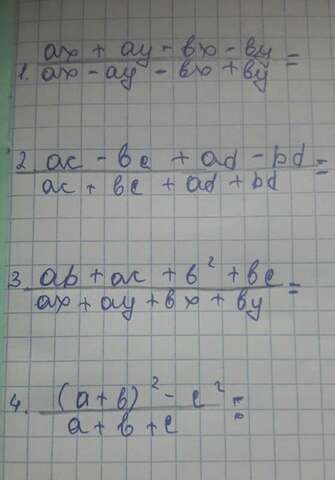 1. ax + ay - bx - by =
ax - ay - bx + by
2 ac - bc + ad - bd =
ac + bc + ad + bd
3. ab + ac + b² + bc =
ax + ay + bx + by
4. (a + b)² - c² =
a + b + c